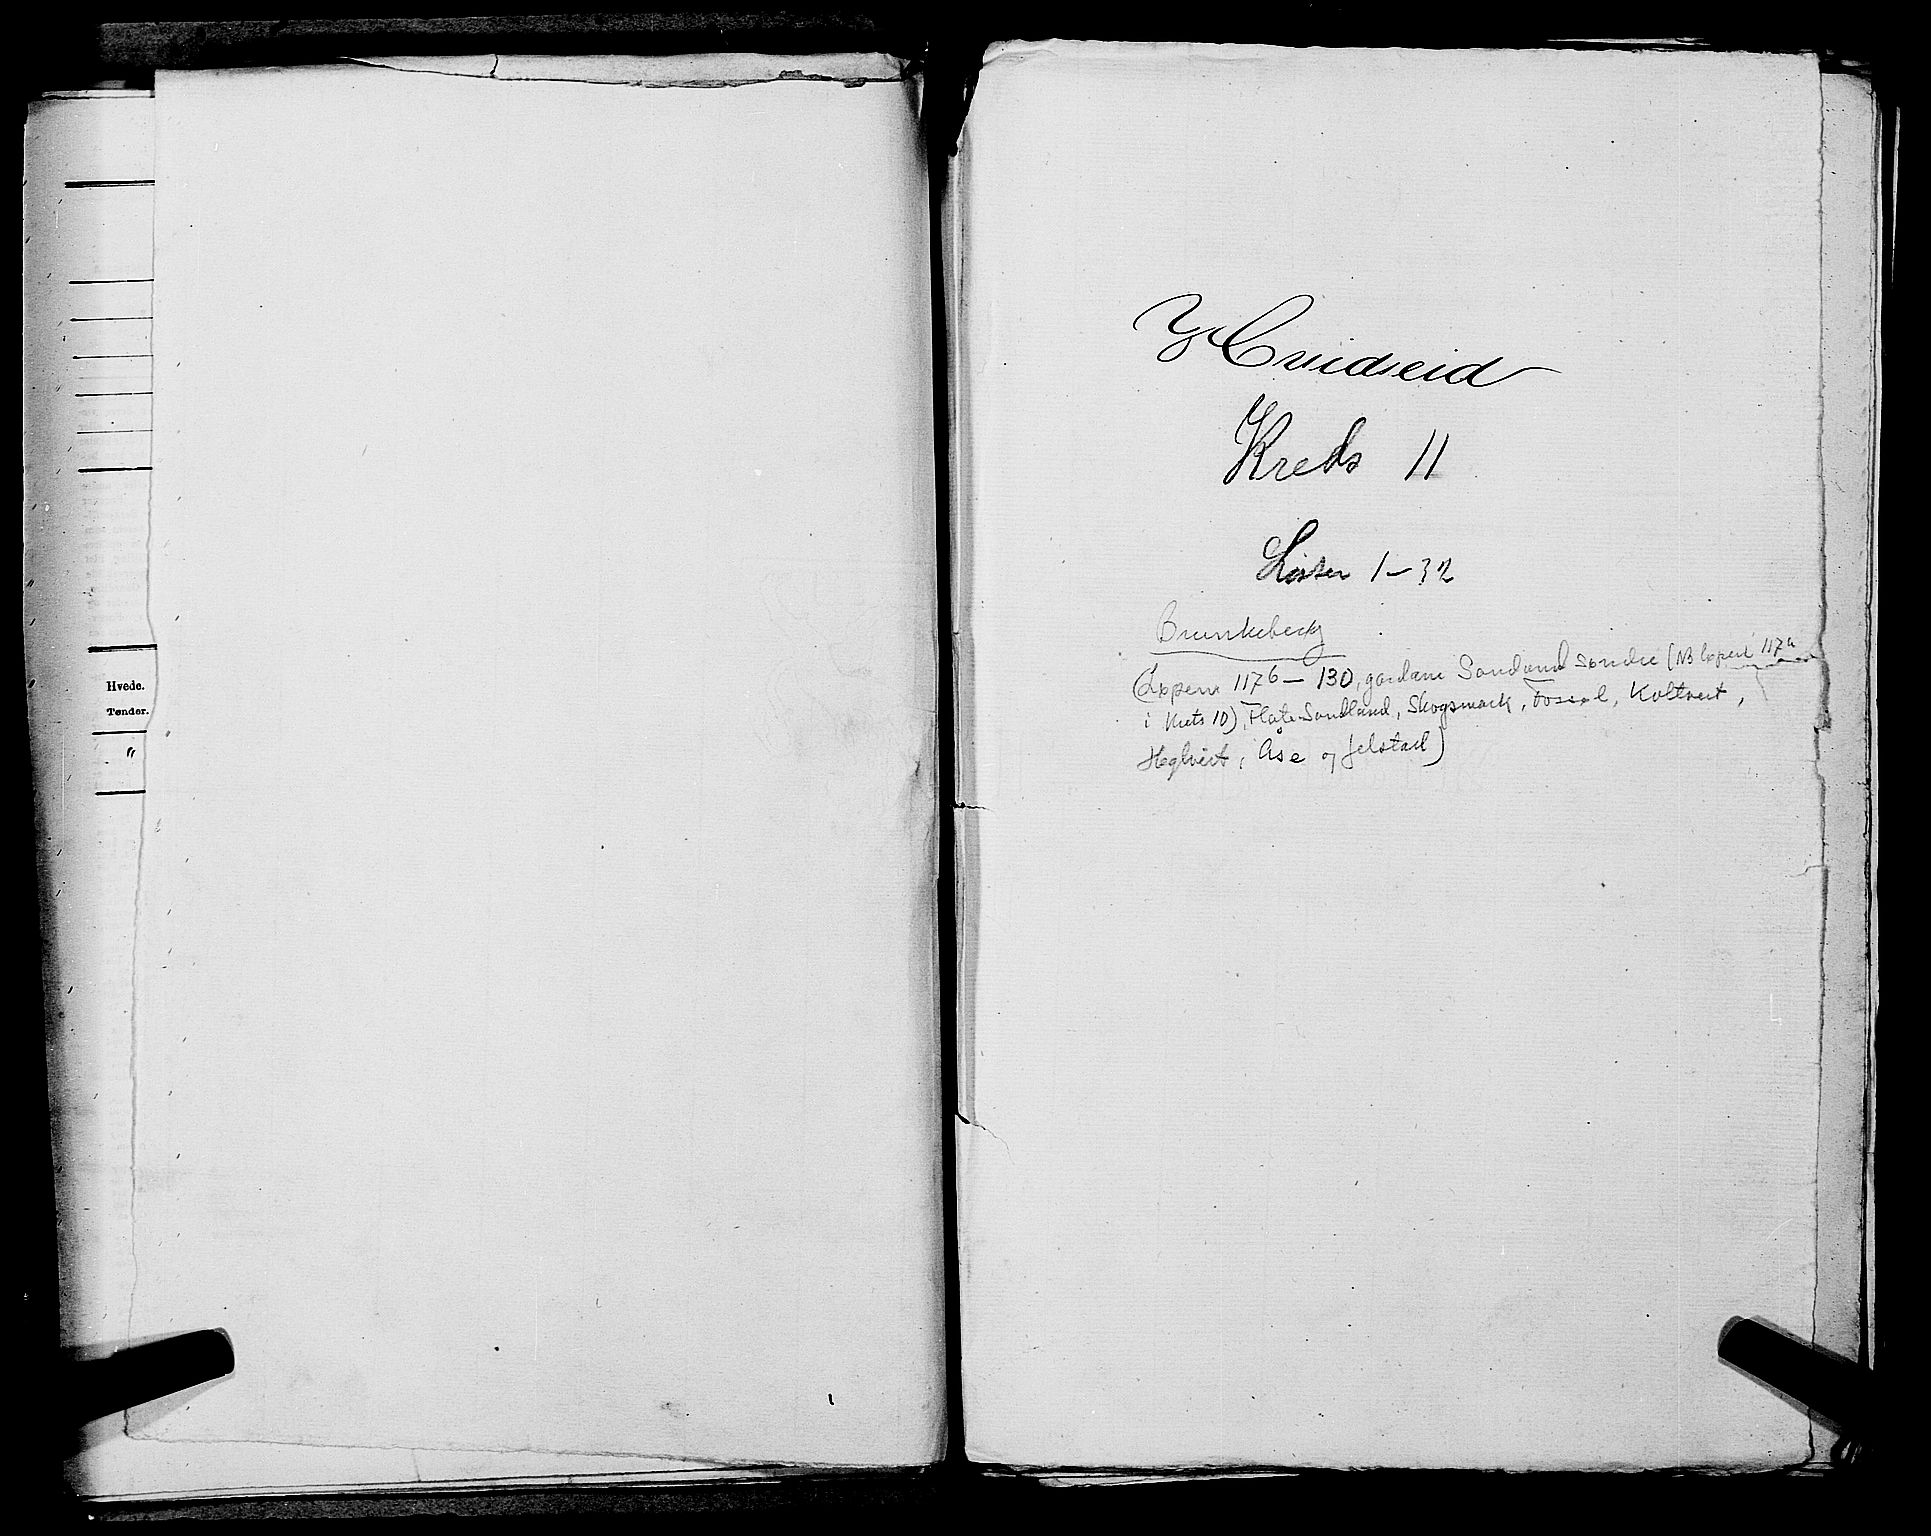 Hvede.
Tønder.
"
Hvidseid
Kreds 11
Lister 1–32
Brunkeberg
(Løpenr 117b – 130, gardane Sundland søndre (NB løpenr 117a
i krets 10), Flate Sundland, Skogsmark, Fossel, Koltveit,
Heglveit, Åse og Jelstad)